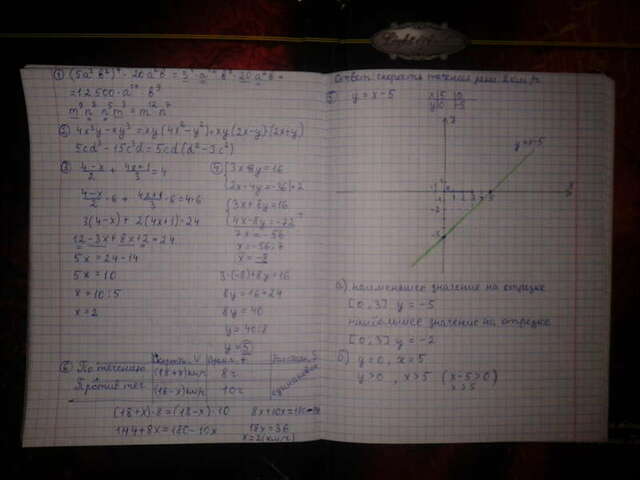 ① (5a²b²)⁴ · 20a²b = 5⁴ · a⁸ · b⁸ · 20a²b =
= 12500 · a¹⁰ · b⁹
② 4x³y - xy³ = xy(4x² - y²) = xy(2x-y)(2x+y)
5cd³ - 15c³d = 5cd(d² - 3c²)
③ (4-x)/2 + (4x+1)/3 = 4
(4-x)/2 · 6 + (4x+1)/3 · 6 = 4·6
3(4-x) + 2(4x+1) = 24
12 - 3x + 8x + 2 = 24
5x = 24 - 14
5x = 10
x = 10 : 5
x = 2
④ { 3x+8y=16
2x-4y=-36 | ·2
{ 3x+8y=16
4x-8y=-72
7x = -56
x = -56:7
x = -8
3·(-8)+8y=16
8y = 16+24
8y = 40
y = 40:8
y = 5
⑥ По течению (18+x)км/ч 8ч
Против теч (18-x)км/ч 10ч одинаковое
(18+x)·8=(18-x)·10
144+8x=180-10x
8x+10x=180-144
18x=36
x=2(км/ч)
Ответ: скорость течения реки 2 км/ч
⑤ y = x-5
x|5|0
y|0|-5
y=x-5
а) наименьшее значение на отрезке
[0,3] y = -5
наибольшее значение на отрезке
[0,3] y = -2
б) y=0, x=5
y>0, x>5 (x-5>0)
x>5